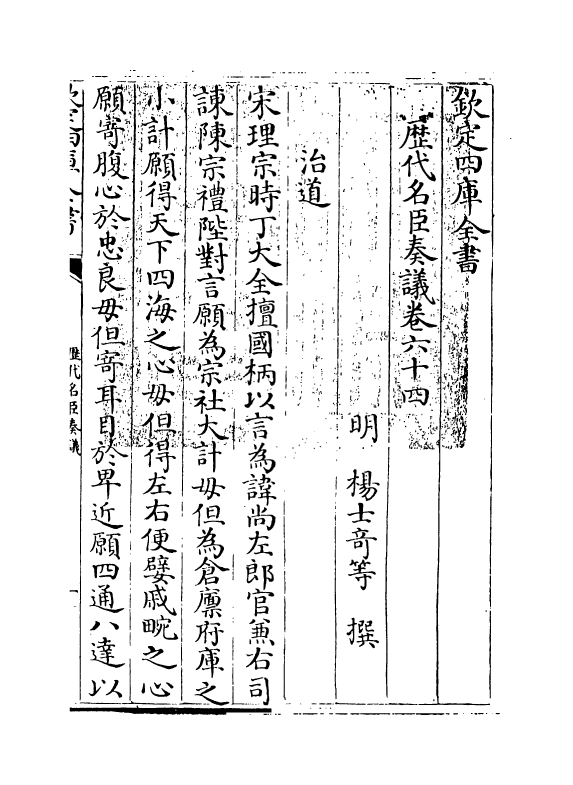 欽定四庫全書
歷代名臣奏議卷六十四
明　楊士竒等　撰
治道
宋理宗時丁大全擅國柄以言為諱尚左郎官兼右司
諫陳宗禮陛對言願為宗社大計毋但為倉廪府庫之
小計願得天下四海之心毋但得左右便嬖戚畹之心
願寄腹心於忠良毋但寄耳目於卑近願四通八達以
欽定四庫全書
歷代名臣奏議
一